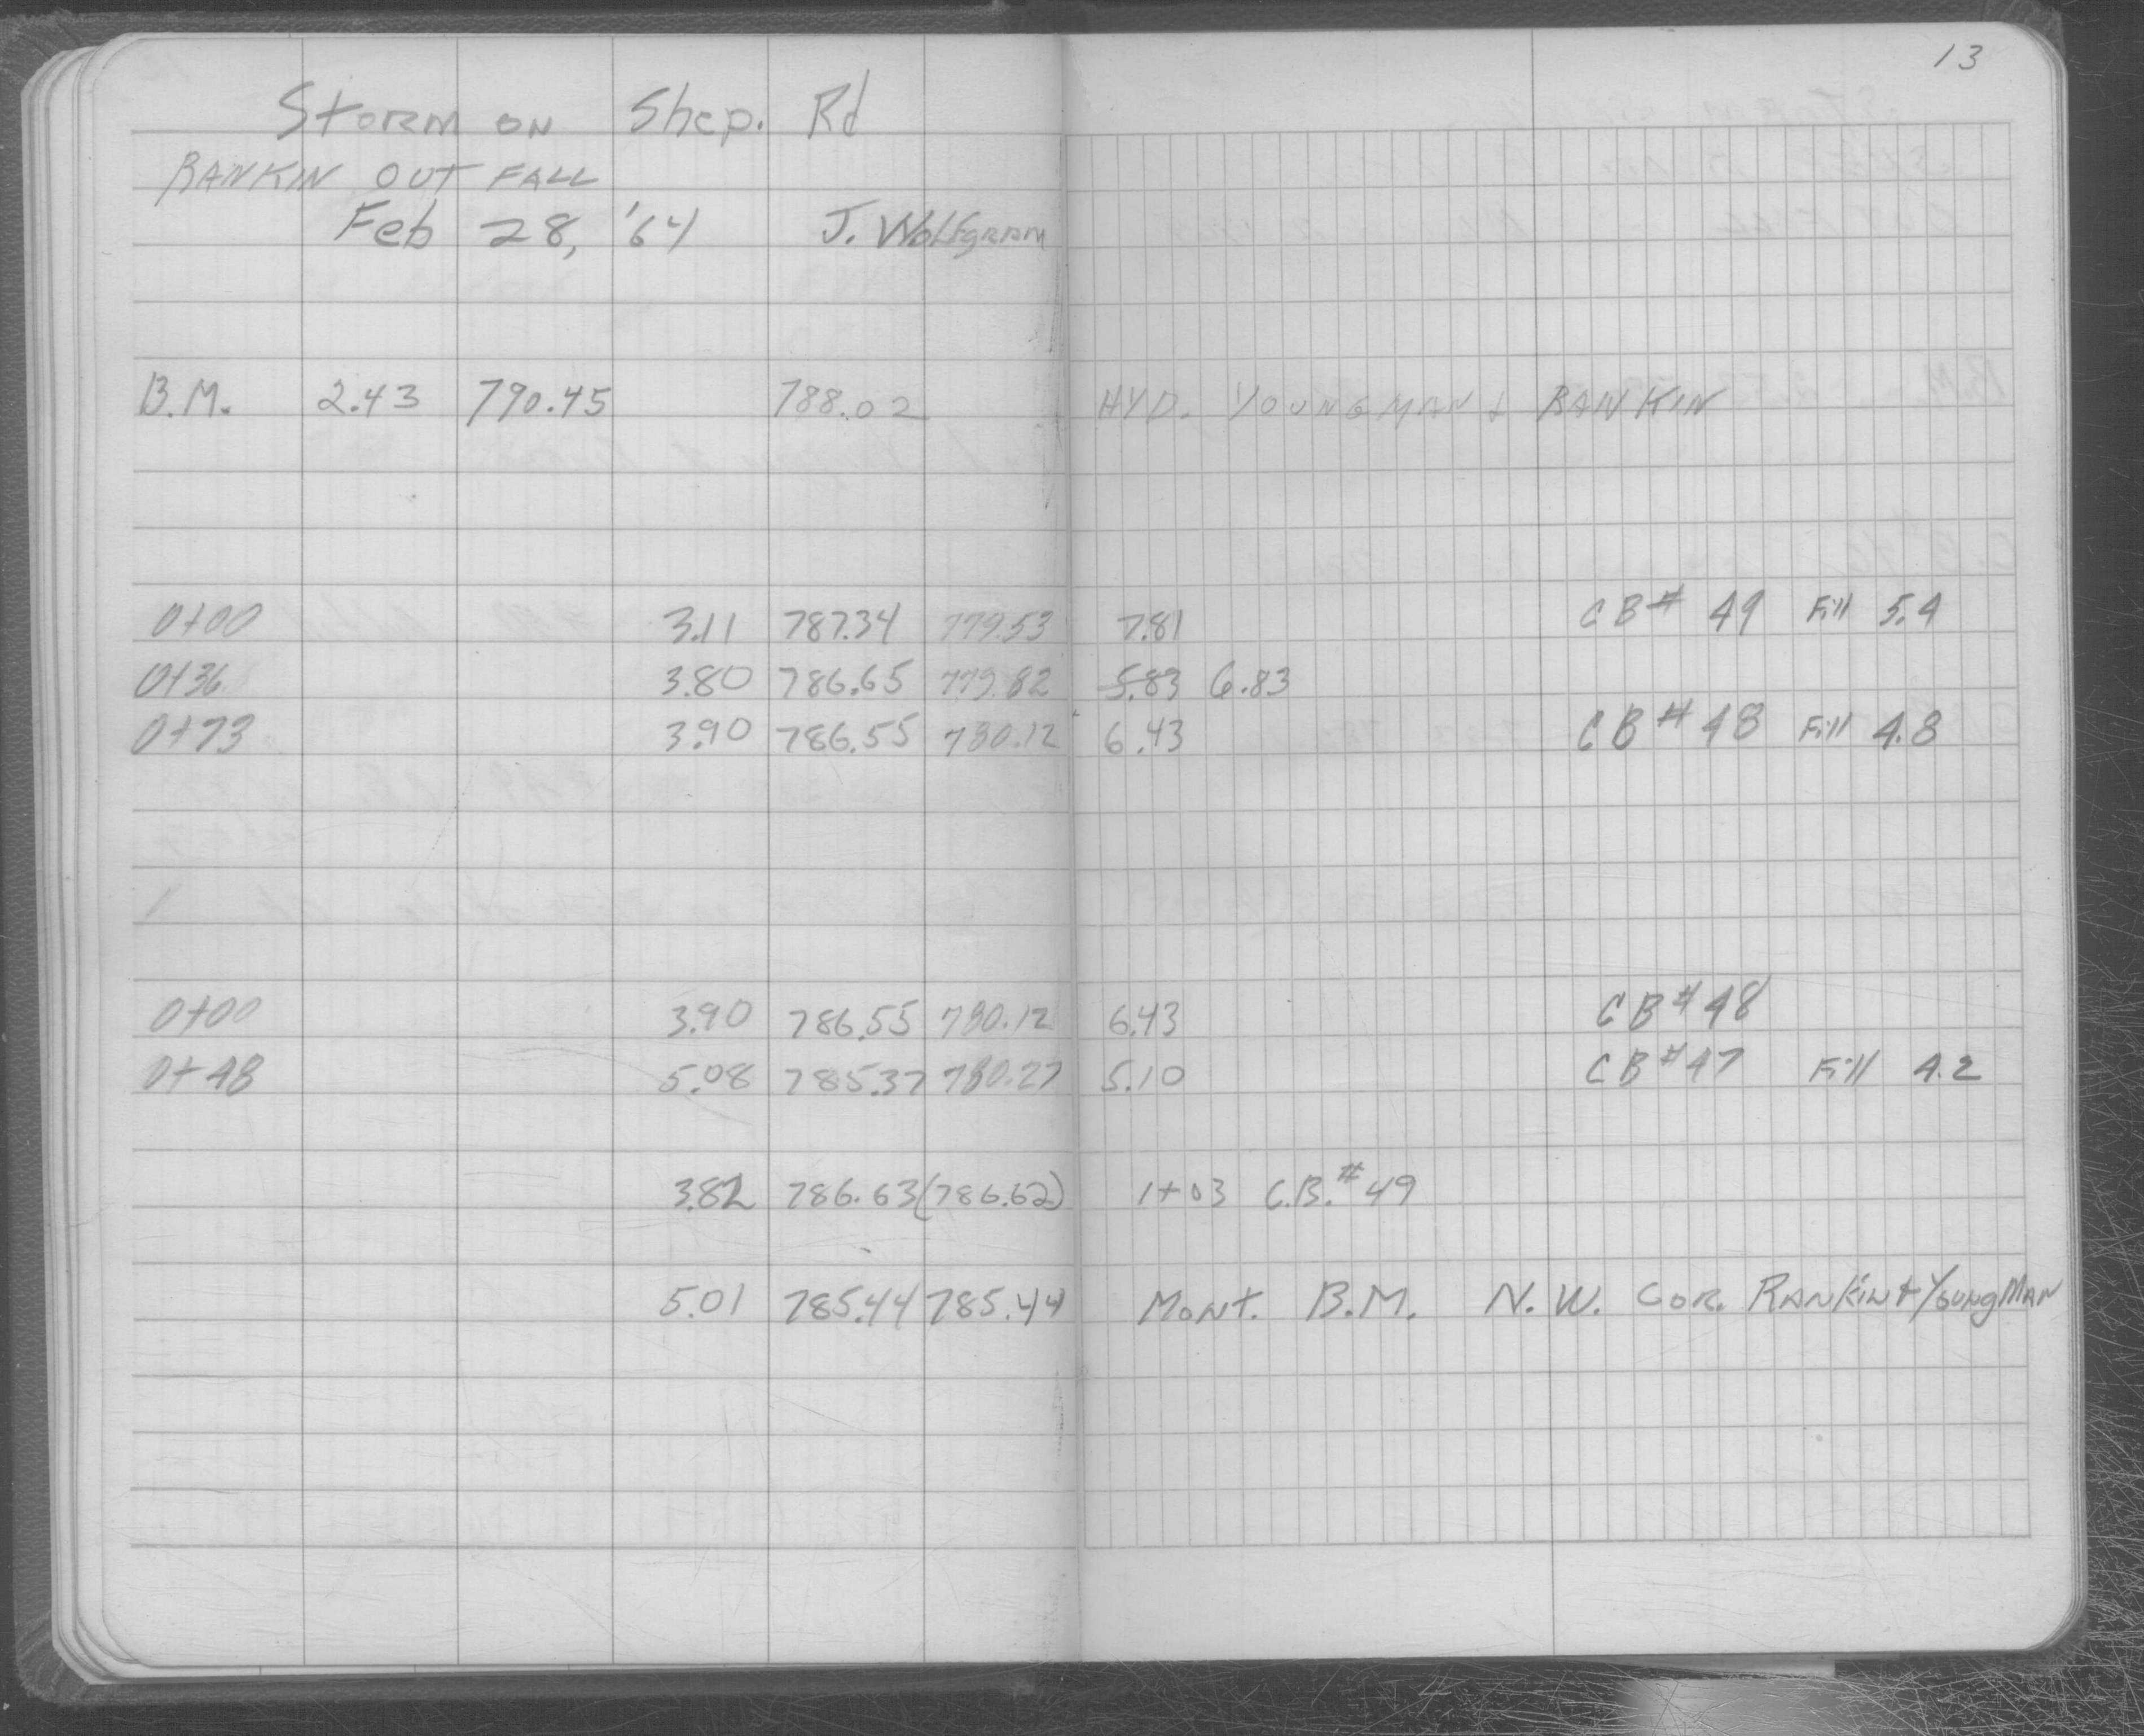 13
Storm on Shep. Rd
RANKIN OUT FALL
Feb 28, '64 J. Wolfgram
B.M. 2.43 790.45 788.02 HYD. YOUNGMAN & RANKIN
0+00 3.11 787.34 779.53 7.81 CB# 49 Fill 5.4
0+36 3.80 786.65 779.82 5.83 6.83
0+73 3.90 786.55 780.12 6.43 CB# 48 Fill 4.8
0+00 3.90 786.55 780.12 6.43 CB# 48
0+48 5.08 785.37 780.27 5.10 CB# 47 Fill 4.2
3.82 786.63 (786.62) 1+03 C.B.# 49
5.01 785.44 785.44 Mont. B.M. N.W. Cor. Rankin & Youngman